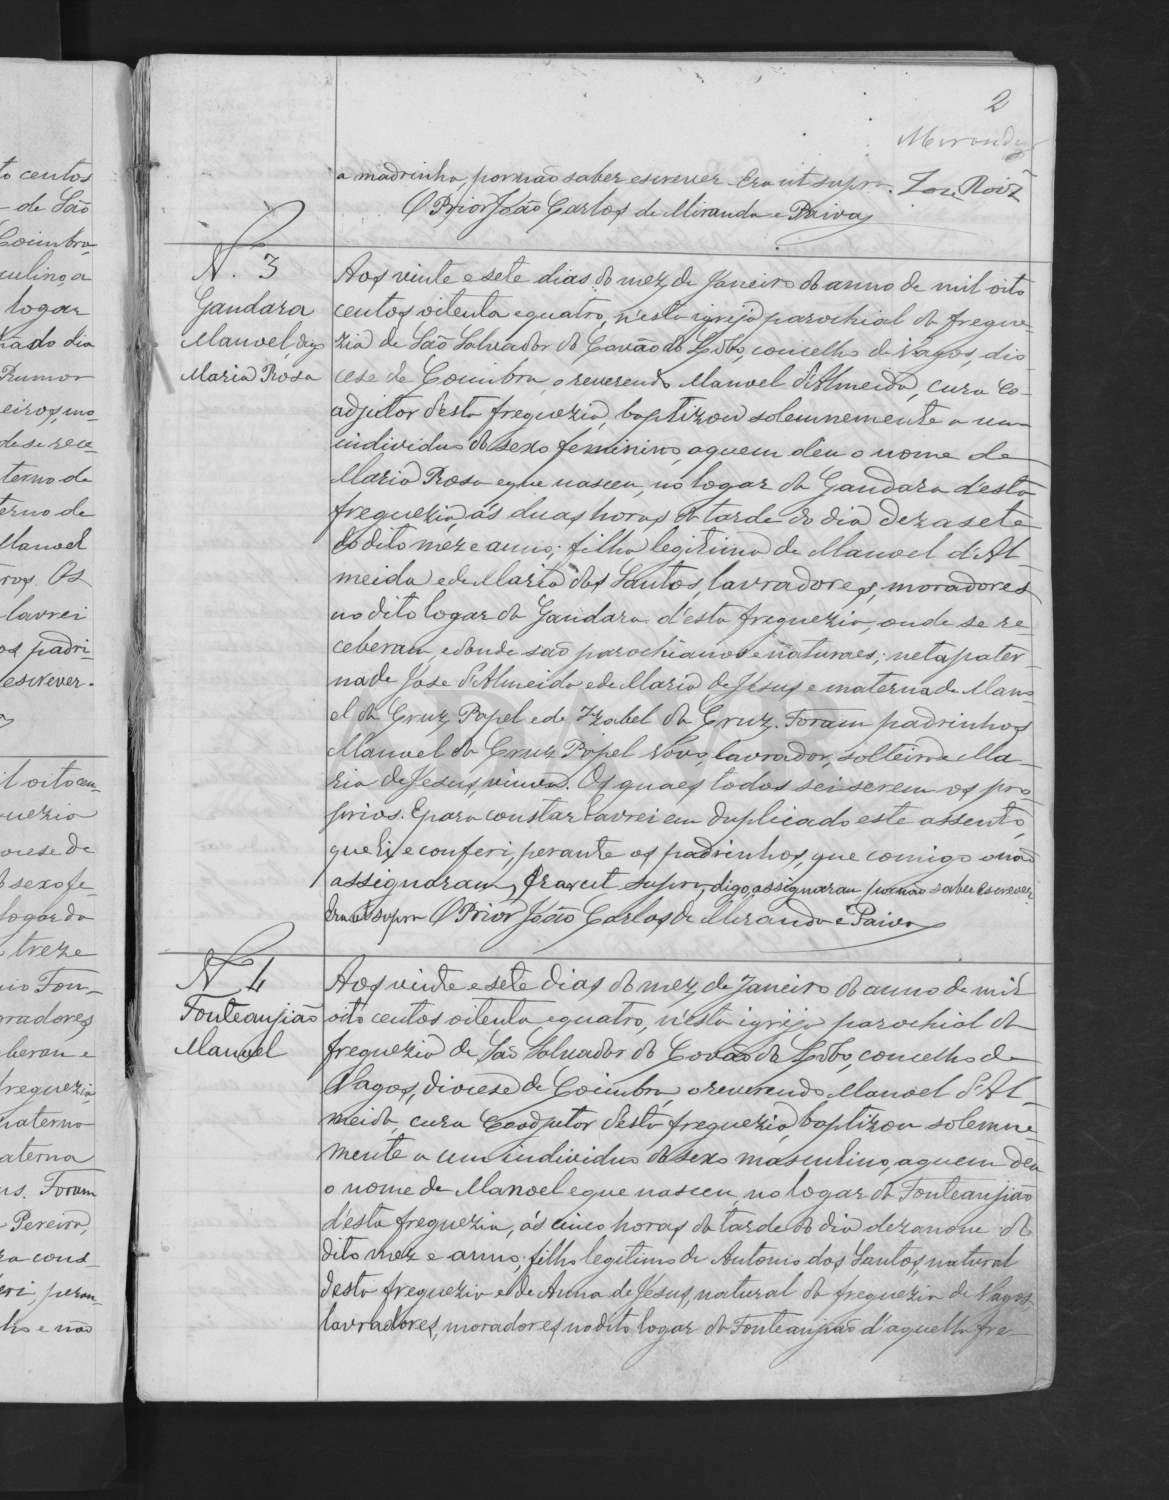 2
Miranda
a madrinha, por não saber escrever. Era ut supra.
O Prior João Carlos de Miranda e Paiva
N. 3
Gandara
Manoel, digo
Maria Rosa
Aos vinte e sete dias do mez de Janeiro do anno de mil oito
centos oitenta e quatro, n'esta igreja parochial da fregue-
zia de São Salvador do Covão do Lobo, concelho de Vagos, dio
cese de Coimbra, o reverendo Manoel d'Almeida, cura co-
adjutor d'esta freguezia, baptizou solemnemente a um
individuo do sexo feminino, a quem deu o nome de
Maria Rosa e que nasceu, no logar da Gandara d'esta
freguezia, ás duas horas da tarde do dia dezasete
do dito mez e anno; filha legitima de Manoel d'Al-
meida e de Maria dos Santos, lavradores, moradores
no dito logar da Gandara d'esta freguezia, onde se re-
ceberam, e donde são parochianos e naturaes; neta pater-
na de José d'Almeida e de Maria de Jesus e materna de Mano
el da Cruz Papel e de Izabel da Cruz. Foram padrinhos
Manoel da Cruz Papel Novo, lavrador, solteiro e Ma-
ria de Jesus, viuva. Os quaes todos sei serem os pro-
prios. E para constar lavrei em duplicado este assento,
que li e conferi, perante os padrinhos, que comigo o não
assignaram, Era ut supra, digo, assignaram por não saber escrever.
Era ut supra O Prior João Carlos de Miranda e Paiva
N. 4
Fonteanjião
Manoel
Aos vinte e sete dias do mez de Janeiro do anno de mil
oito centos oitenta e quatro, n'esta igreja parochial da
freguezia de São Salvador do Covão do Lobo, concelho de
Vagos, diocese de Coimbra, o reverendo Manoel d'Al-
meida, cura Coadjutor d'esta freguezia, baptizou solemne-
mente a um individuo do sexo masculino, a quem deu
o nome de Manoel e que nasceu, no logar da Fonteanjião
d'esta freguezia, ás cinco horas da tarde do dia dezanove do
dito mez e anno; filho legitimo de Antonio dos Santos, natural
d'esta freguezia e de Anna de Jesus, natural da freguezia de Vagos,
lavradores, moradores no dito logar da Fonteanjião d'aquella fre-